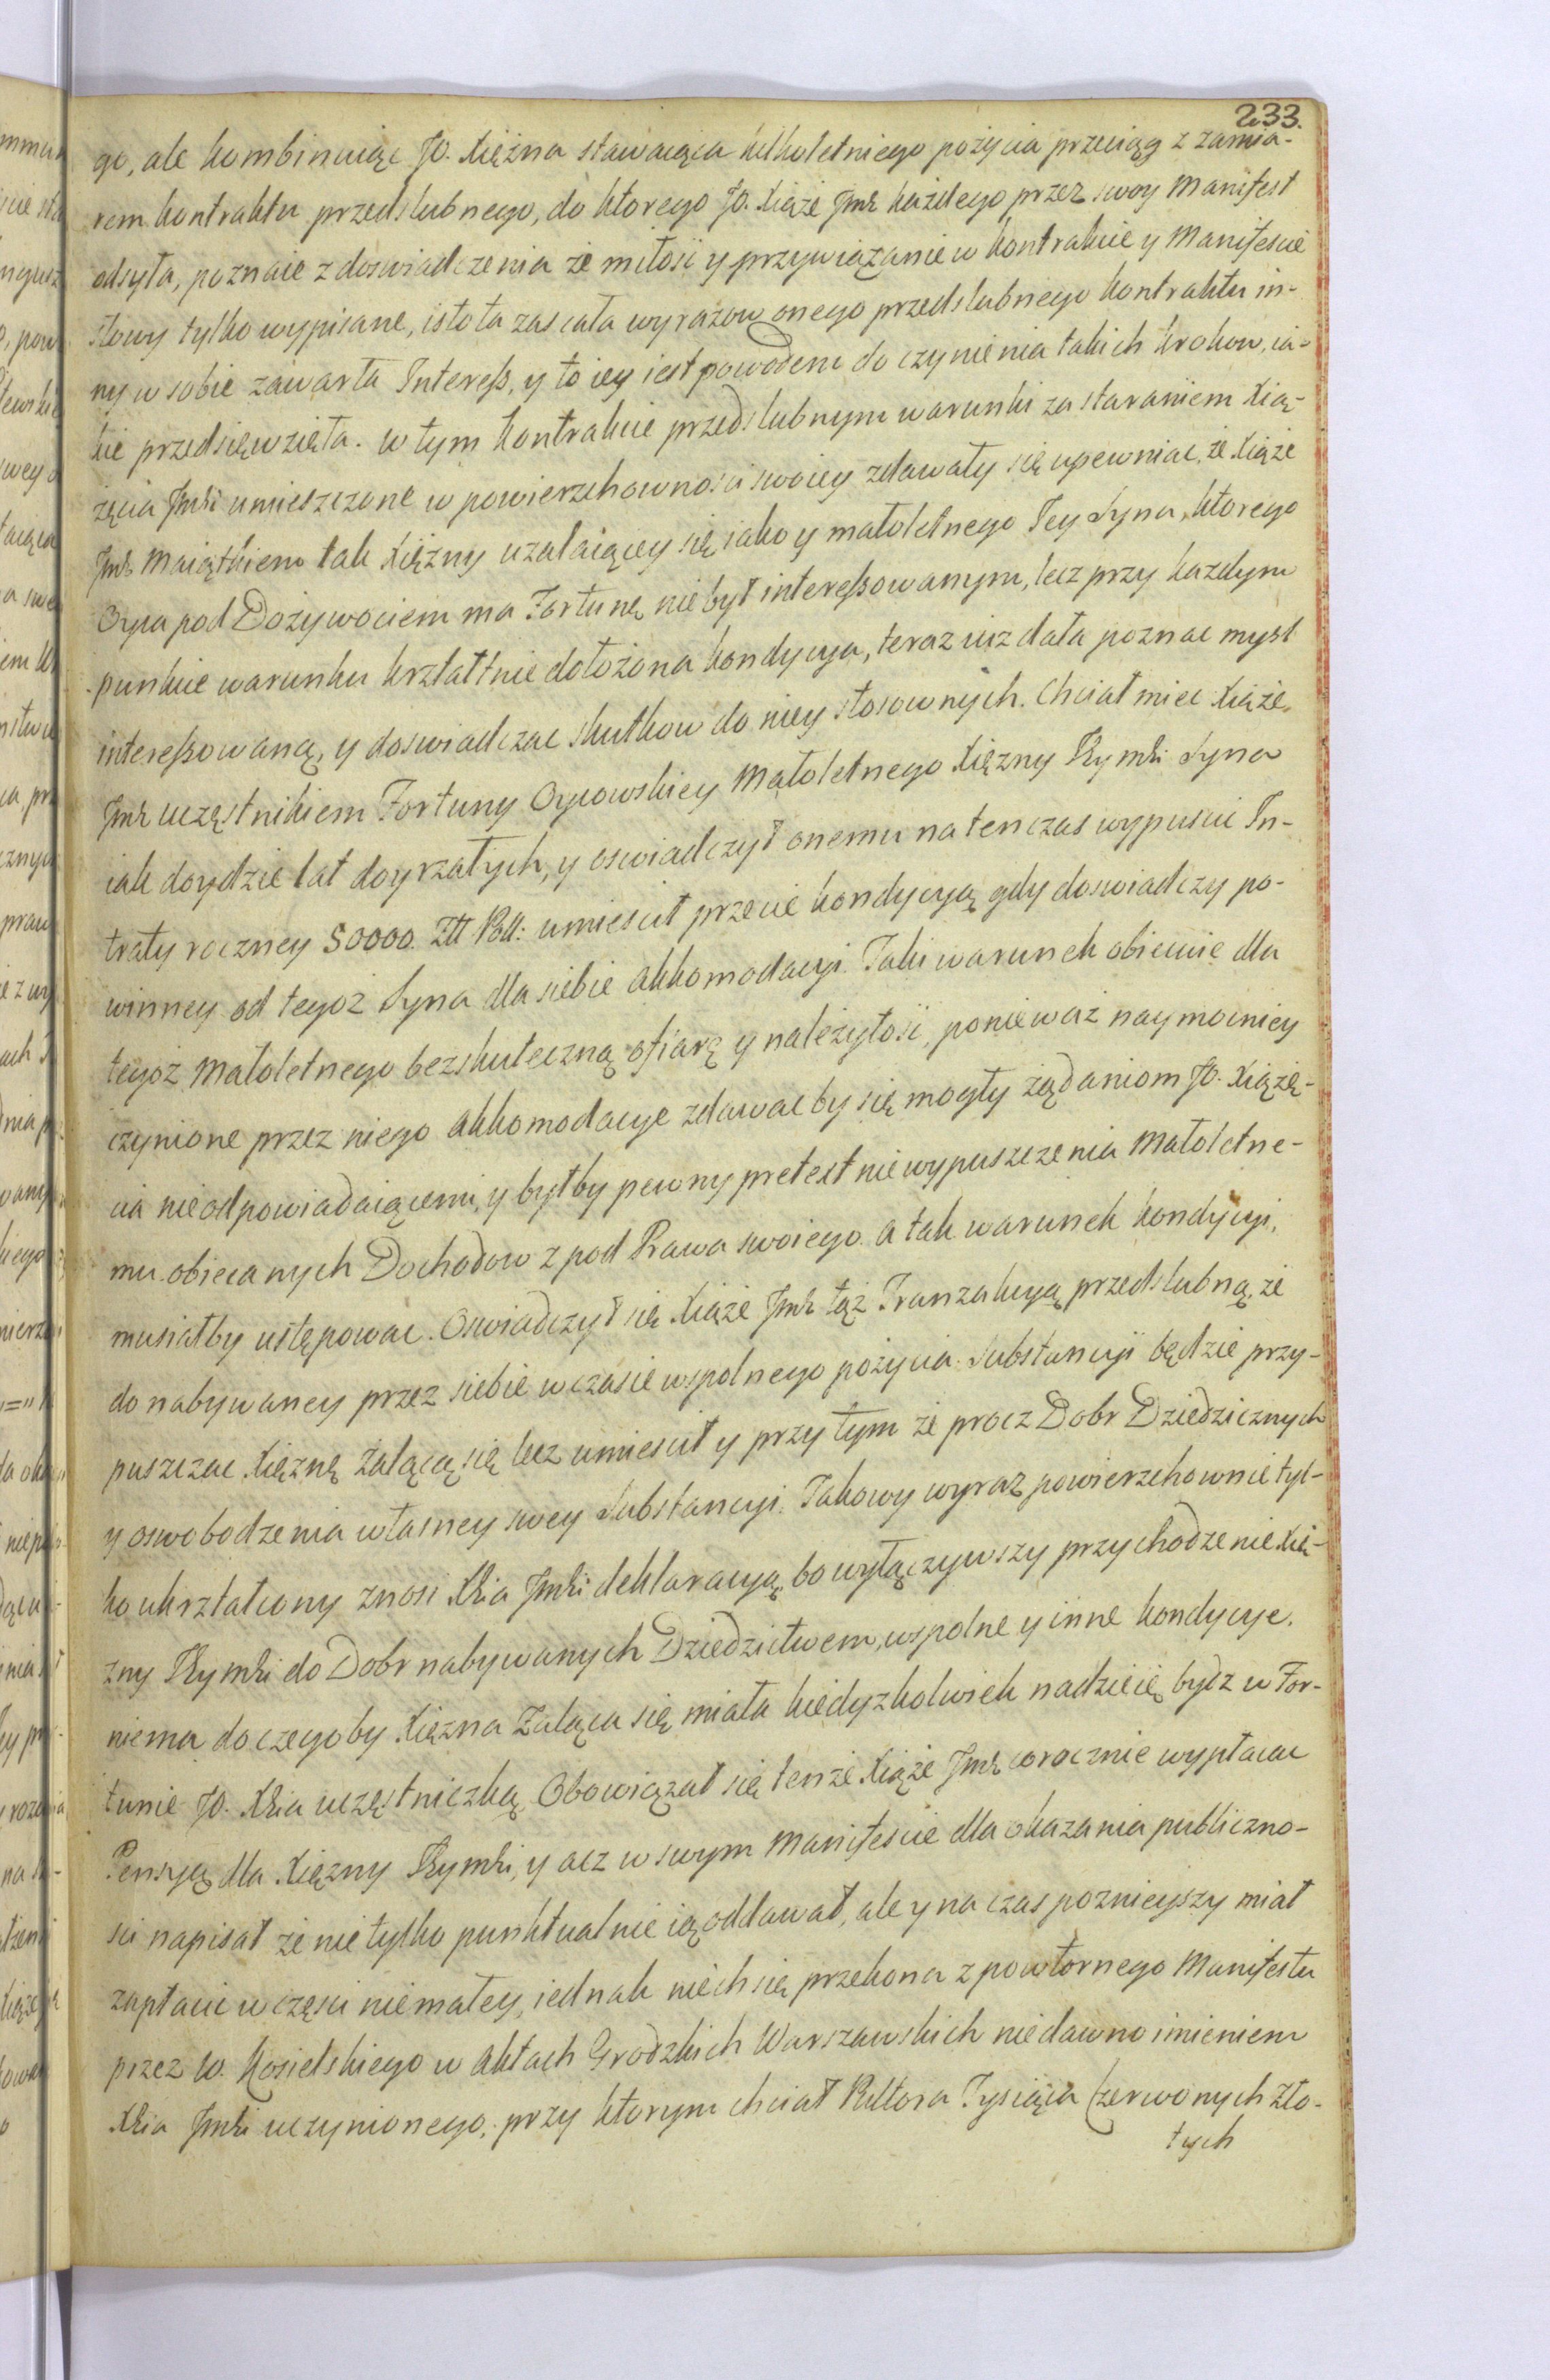 233.
go, ale kombinuiąc JO. Xiężna stawaiąca kilkoletniego pożycia przeciąg z zamia-
rem kontraktu przedslubnego, do ktorego JO. Xiąże Jmć każdego przez swoy Manifest
odsyła, poznaie z doswiadczenia że miłość y przywiązanie w kontrakcie y Manifescie
słowy tylko wypisane, istota zas cała wyrazow onego przedslubnego kontraktu in-
ny w sobie zawarła Interess, y to iey iest powodem do czynienia takich krokow, ia-
kie przedsięwzięła. w tym kontrakcie przedslubnym warunki za staraniem Xią-
żęcia Jmści umieszczone w powierzchownosci swoiey zdawały się upewniac, że Xiąże
Jmć Maiątkiem tak Xiężny uzalaiącey się iako y małoletnego Jey Syna, ktorego
Oyca pod Dożywociem ma Fortunę, nie był interessowanym, lecz przy każdym
punkcie warunku kształtnie dołożona kondycya, teraz iuż dała poznac mysl
interessowaną, y doswiadczac skutkow do niey stosownych. Chciał miec Xiąże
Jmć uczęstnikiem Fortuny Oycowskiey Małoletnego Xiężny Jeymći Syna
iak doydzie lat doyrzałych, y oswiadczył onemu na tenczas wypuscić In-
traty roczney 50000. Złł Poll: umiescił przecie kondycyą gdy doswiadczy po-
winney od tegoż Syna dla siebie akkomodacyi. Taki warunek obiecuie dla
tegoż Małoletnego bezskuteczną ofiarę y należytość, ponieważ naymocniey
czynione przez niego akkomodacye zdawac by się mogły żądaniom JO. Xiążę-
cia nieodpowiadaiącemi, y byłby pewny pretext niewypuszczenia Małoletne-
mu obiecanych Dochodow z pod Prawa swoiego. a tak warunek kondycyi,
musiałby ustępowac. Oswiadczył się Xiąże Jmć tąż Tranzakcyą przedslubną, że
do nabywaney przez siebie w czasie wspolnego pożycia Substancyi będzie przy-
puszczac Xiężnę żalącą się lecz umiescił y przy tym że procz Dobr Dziedzicznych
y oswobodzenia własney swey Substancyi. Takowy wyraz powierzchownie tyl-
ko ukształcony znosi Xcia Jmći deklaracyą, bo wyłączywszy przychodzenie Xię-
zny Jeymći do Dobr nabywanych Dziedzictwem, wspolne y inne kondycye.
niema do czegoby Xiężna Żaląca się miała kiedyzkolwiek nadzieię bydz w For-
tunie JO. Xcia uczęstniczką. Obowiązał się tenże Xiąże Jmć corocznie wypłacac
Pensyą dla Xiężny Jeymći, y acz w swym Manifescie dla okazania publiczno-
sci napisał że nie tylko punktualnie ią oddawał, ale y na czas poznieyszy miał
zapłacic w częsci niemałey, iednak niech się przekona z powtornego Manifestu
przez W. Kosielskiego w Aktach Grodzkich Warszawskich niedawno imieniem
Xcia Jmći uczynionego, przy ktorym chciał Pułtora Tysiąca Czerwonych Zło-
tych